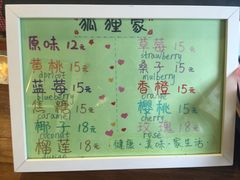 狐狸家
原味 12元
草莓 15元
strawberry
黄桃 15元
apricot
桑子 15元
mulberry
蓝莓 15元
blueberry
香橙 15元
焦糖 15元
caramel
樱桃 15元
cherry
椰子 18元
coconut
玫瑰 18元
rose
榴莲 18元
健康·美味·家生活